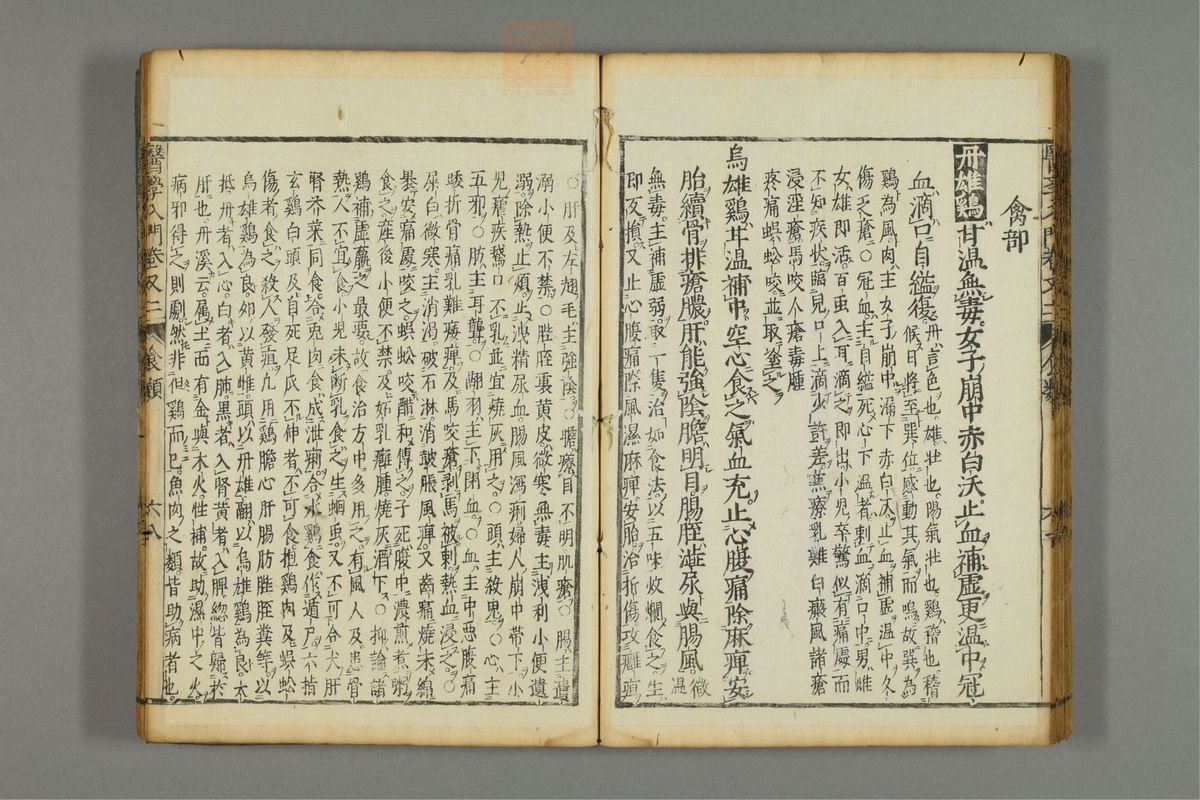 禽部
丹雄鷄甘温無毒女子崩中赤白沃止血補虚更温中冠
血滴口自縊復丹言色也雄壮也陽氣壮也鷄稽也稽
候日將至巽位感動其氣而鳴故巽為
鷄為風肉主女子崩中漏下赤白沃止血補虚温中久
傷乏瘡○冠血主自縊死心下温者刺血滴口中男雌
女雄即活百虫入耳滴之即出小兒卒驚似有痛處而
不知疾状臨兒口上滴少許差兼療乳難白癜風諸瘡
浸淫瘡馬咬人瘡毒腫
疼痛蜈蚣咬並取塗之
烏雄鷄甘温補中空心食之氣血充止心腹痛除麻痺安
胎續骨排瘡膿肝能強陰膽明目腸胵澁尿與腸風微温
無毒主補虚弱取一隻治如食法以五味炆爛食之生
即反損又止心腹痛除風濕麻痺安胎治折傷攻癰疽
○肝及左翅毛主強陰○膽療目不明肌瘡○腸主遺
溺小便不禁○胵胵裏黄皮微寒無毒主洩利小便遺
溺除熱止煩止洩精尿血腸風瀉痢婦人崩中帶下小
兒瘧疾鵝口不乳並宜燒灰用之○頭主殺鬼○心主
五邪○肪主耳聾○翮羽主下閉血○血主中悪腹痛
踒折骨痛乳難痿痺及馬咬瘡剥馬被刺熱血浸之○
屎白微寒主消渴破石淋消皷脹風痺
食之産後小便不禁及妬乳癰腫燒灰酒下○抑論諸
鷄補虚羸之最要故食治方中多用之有風人及患骨
熱人不宜食小兒未断乳食之生蛔虫又不可合犬肝
腎芥菜同食合兎肉食成泄痢合水鷄食作遁尸六指
玄鷄白頭及自死足爪不伸者不可食抱鷄肉及蜈蚣
傷者食之殺人發疽凢用鷄膽心肝腸肪胵糞等以
烏雄鷄為良卵以黄雌頭以丹雄翮以烏雄鷄為良大
抵丹者入心白者入肺黒者入腎黄者入脾総皆歸於
肝也丹溪云属土而有金與木火性補故助濕中之火
病邪得之則劇然非但鷄而已魚肉之類皆助病者也
醫學入門卷又二
食類
六八